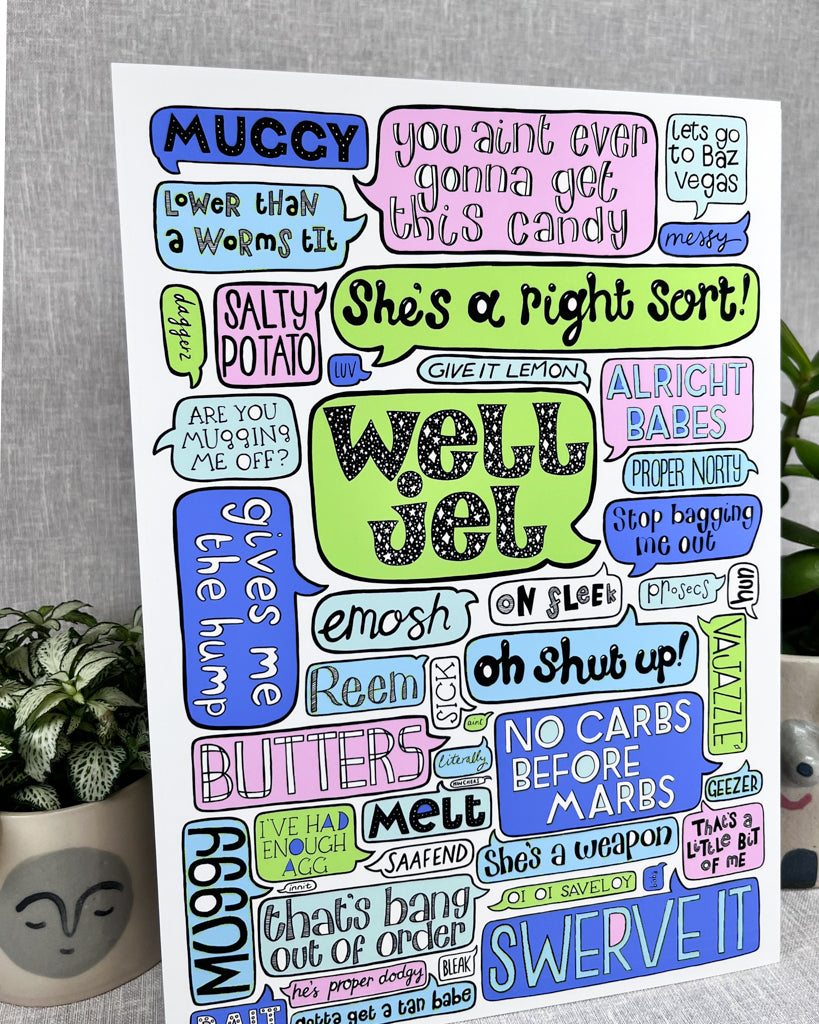 MUGGY
you aint ever
gonna get
this candy
lets go
to Baz
vegas
messy
LOWER tHaN
a WORMS tIt
daggerz
SALTY
POTATO
She's a right sort!
LUV
GIVE IT LEMON
ALRIGHT
BABES
ARE YOU
MUggINg
ME OFF?
well
jel
PROPER NORTY
Stop bagging
me out
gives me
the hump
emosh
ON fLEEK
prosecs
un
VAJAZZLE
Reem
SICK
oh shut up!
aint
BUTTERS
literally
NO CARBS
BEFORE
MARBS
GEEZER
melt
I'VE HAD
ENOUGH
AGG
SAAFEND
She's a weapon
THAt'S a
LittLE BIt
OF ME
MUGGY
innit
that's bang
out of order
OI OI SAVELOY
baby
SWERVE IT
BLEAK
he's proper dodgy
gotta get a tan babe